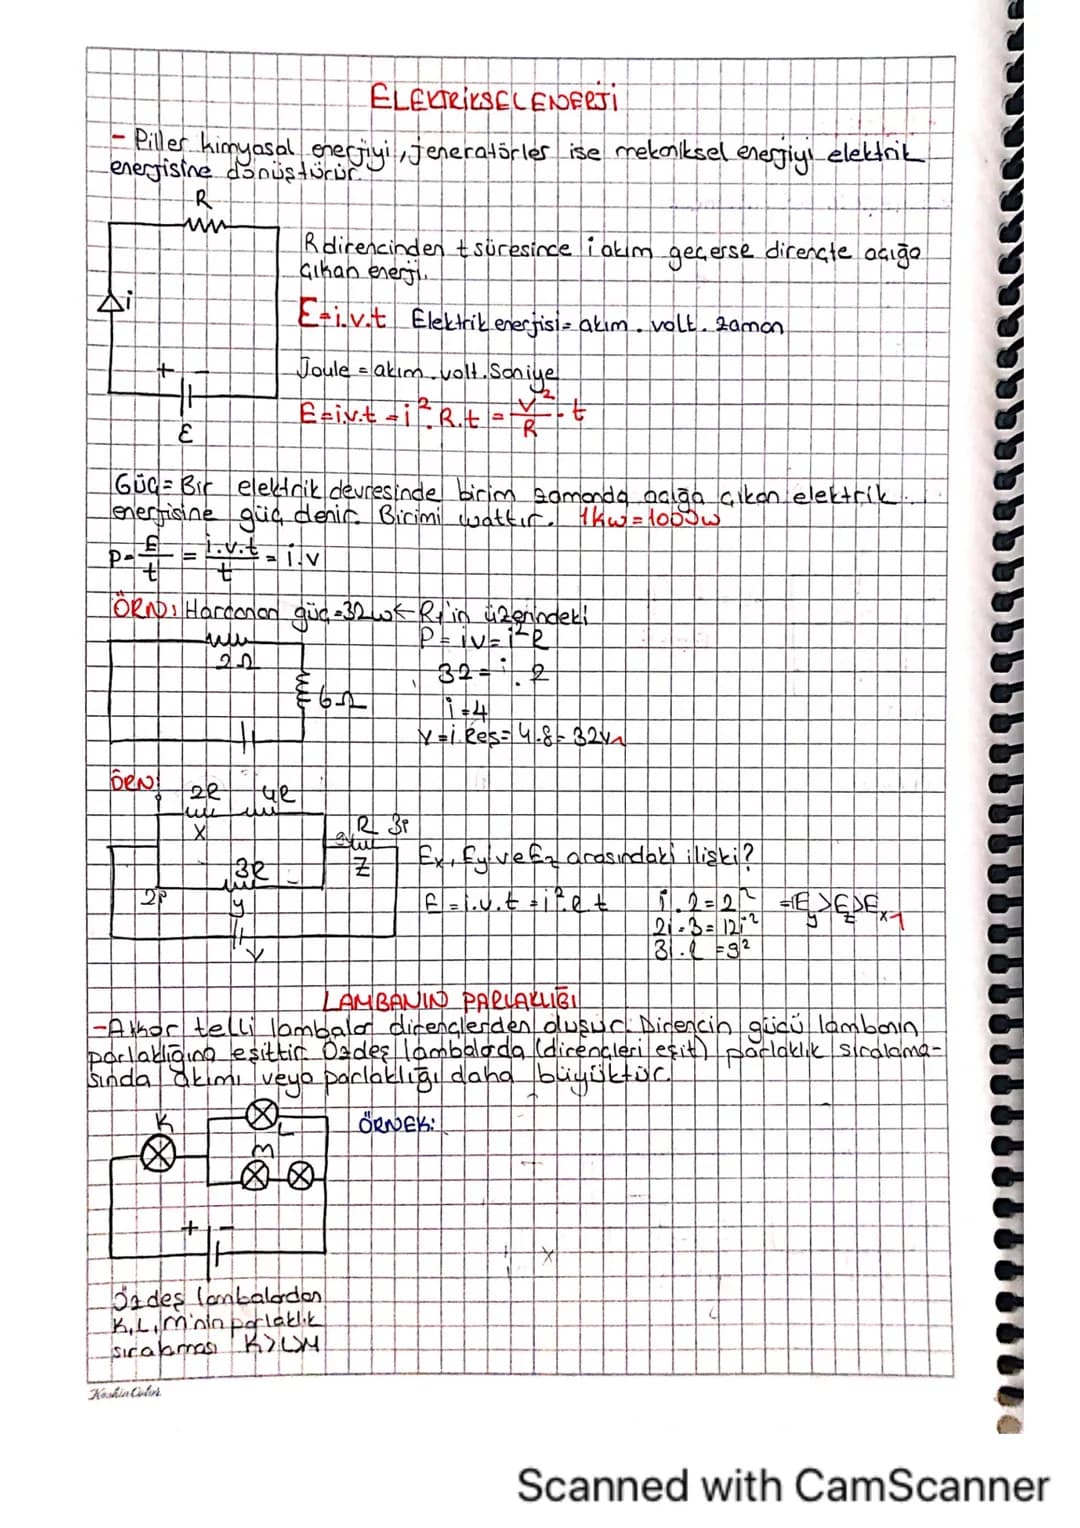 ELEKTRİKSEL ENERJİ
- Piller kimyasal enerjiyi, jeneratörler ise mekaniksel enerjiyi elektrik
enerjisine dönüştürür.
R
R direncinden t süresince i akım geçerse dirençte açığa
çıkan enerji.
i
E=i.v.t Elektrik enerjisi= akım. volt. zaman
+ -
Joule = akım.volt.Saniye
E=i.v.t = i².R.t = V²/R . t
ε
Güç= Bir elektrik devresinde birim zamanda açığa çıkan elektrik
enerjisine güç denir. Birimi wattır. 1kw=1000w
P= E/t = i.v.t/t = i.v
ÖRN: Harcanan güç=32w ← R₁'in üzerindeki
P= iv=i²R
2Ω
32=i.2
6Ω
i=4
V=i.Reş=4.8=32V
ÖRN:
2R 4R
X
R 3i
Z
Ex, Ey ve Ez arasındaki ilişki?
3R
2i
y
E=i.v.t=i².R.t
i.2=2²
2i.3=12i²
=9²
Ey>Ez>Ex
V
LAMBANIN PARLAKLIĞI
-Akkor telli lambalar dirençlerden oluşur. Direncin gücü lambanın
parlaklığına eşittir. Özdeş lambalarda (dirençleri eşit) parlaklık sıralama-
sında akımı veya parlaklığı daha büyüktür.
K
L
ÖRNEK:
M
+ -
Özdeş lambalardan
K,L,M'nin parlaklık
sıralaması K>L>M
Keskin Color
Scanned with CamScanner